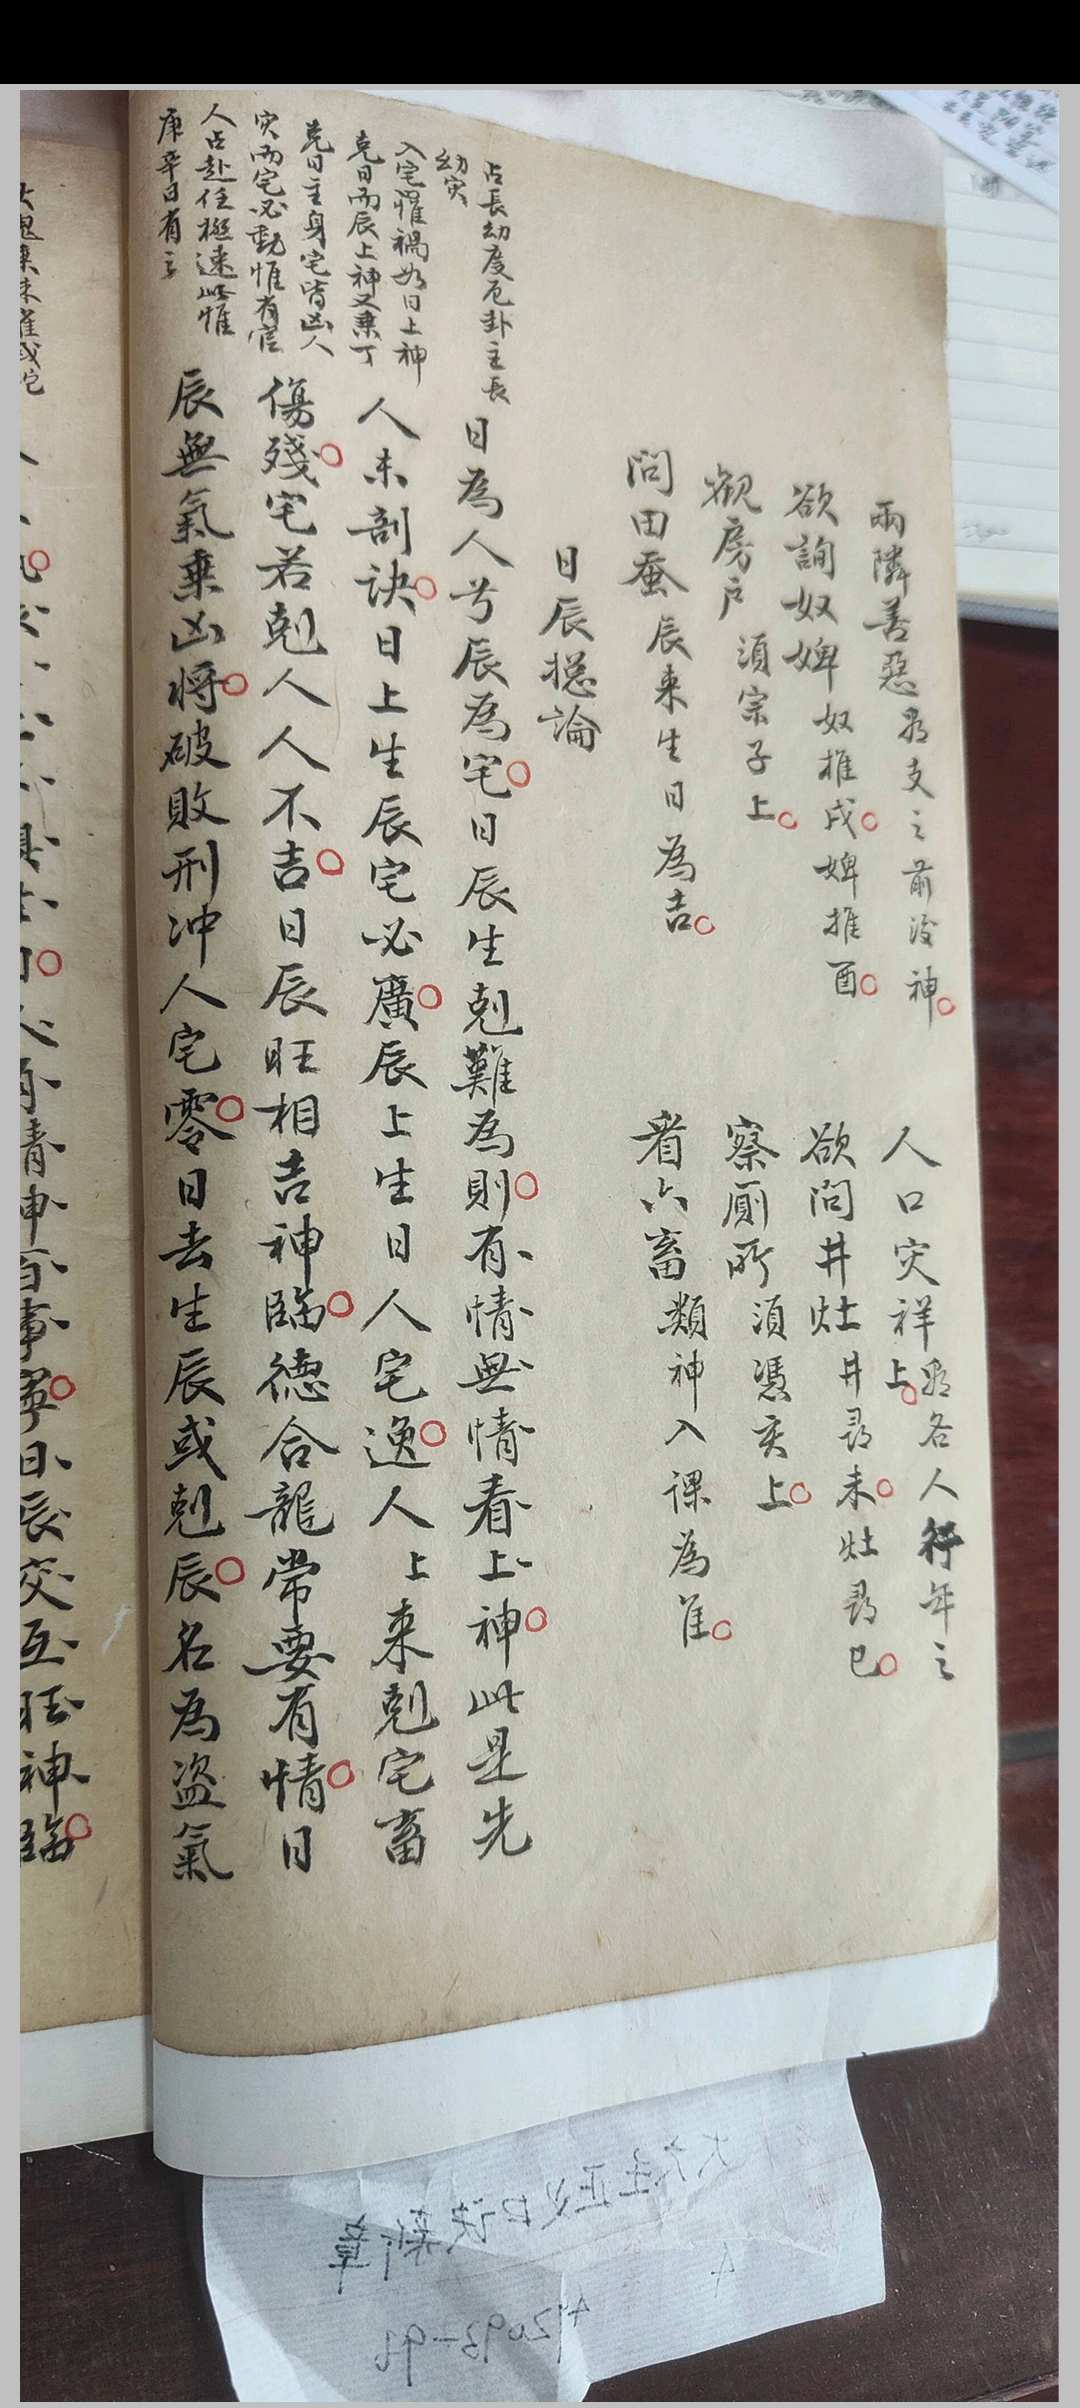 兩隣善惡 㝷支之前後神
人口灾祥 㝷各人行年之上
欲詢奴婢 奴推戌婢推酉
欲問井灶 井尋未灶尋巳
觀房户 須宗子上
察厠所 須憑亥上
問田蚕 辰来生日為吉
看六畜 類神入課為准
日辰摠論
占長幼度厄卦主長
幼灾
日為人兮辰為宅日辰生剋難為則有情無情看上神此是先
入宅罹禍如日上神
克日而辰上神又乗丁
人未剖訣日上生辰宅必廣辰上生日人宅逸人上来剋宅畜
克日主身宅皆凶人
灾而宅必動惟有官
傷殘宅若剋人人不吉日辰旺相吉神臨德合龍常要有情日
人占赴任極速此惟
庚辛日有之
辰無氣乗凶将破敗刑冲人宅零日去生辰或剋辰名為盜氣
青神百事寧日辰交互旺神臨
大六壬正义口诀新章